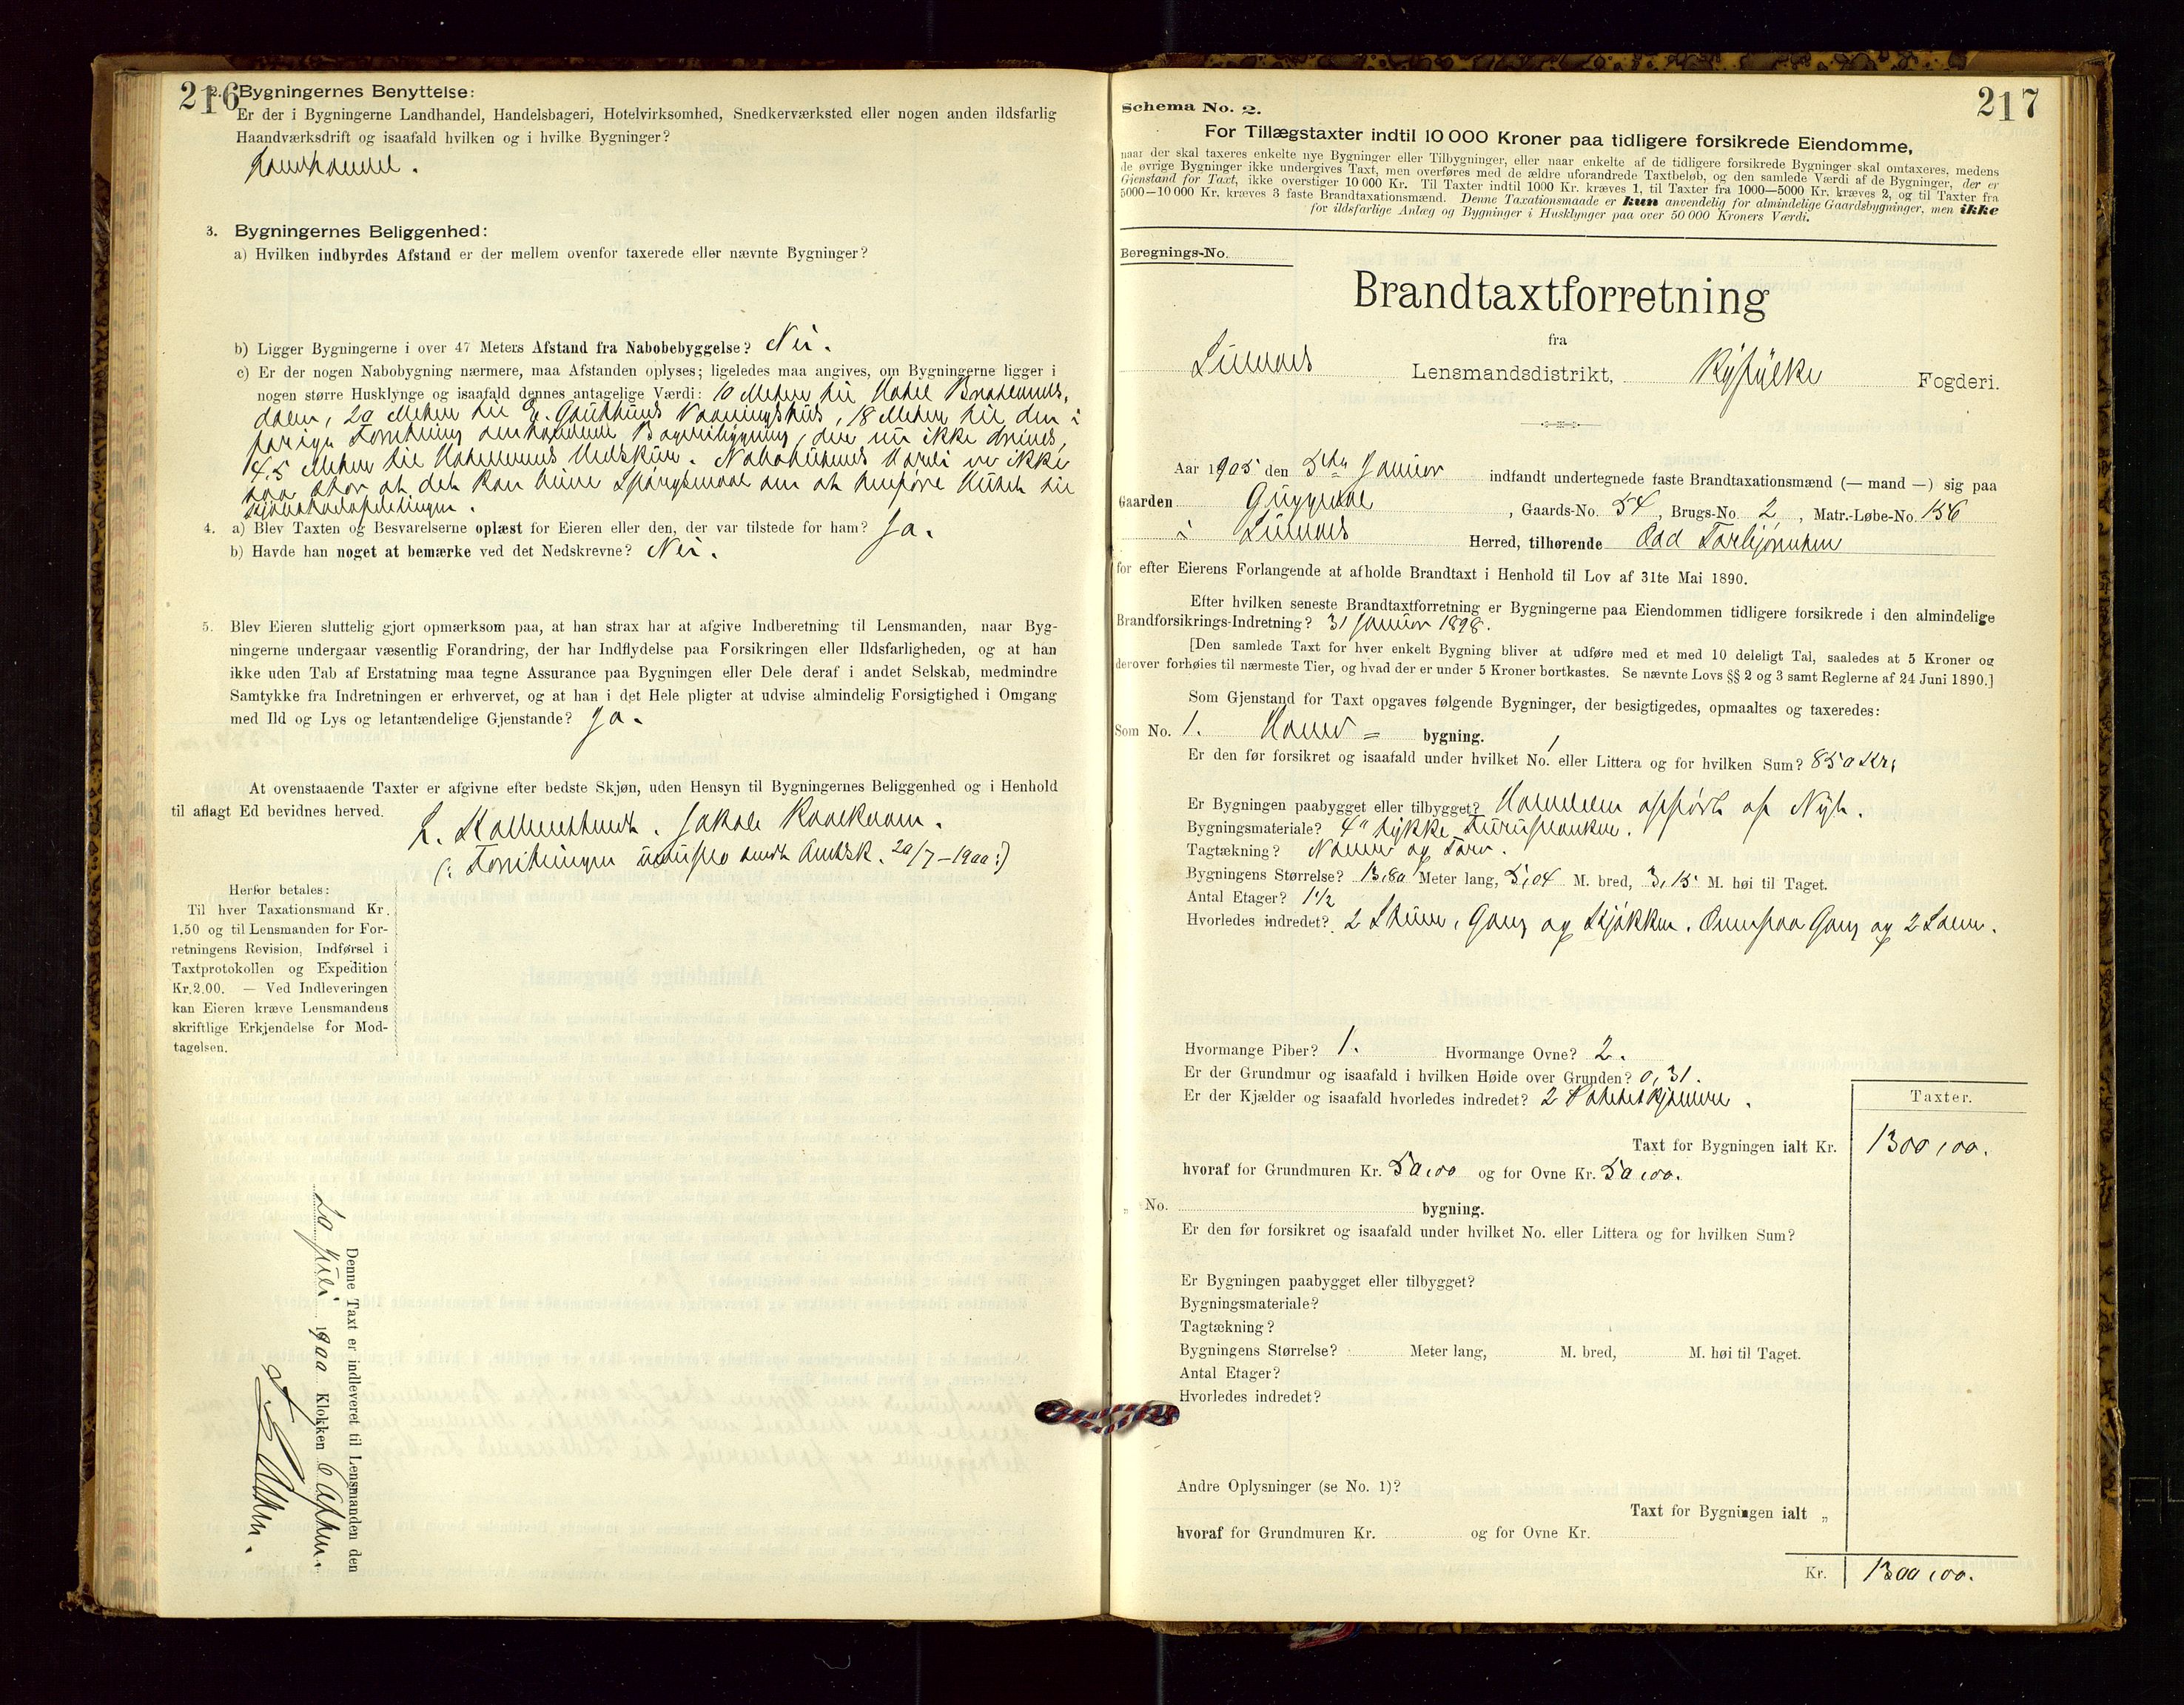 216
2. Bygningernes Benyttelse:
Er der i Bygningerne Landhandel, Handelsbageri, Hotelvirksomhed, Snedkerværksted eller nogen anden ildsfarlig
Haandværksdrift og isaafald hvilken og i hvilke Bygninger?
Landhandel.
3. Bygningernes Beliggenhed:
a) Hvilken indbyrdes Afstand er der mellem ovenfor taxerede eller nævnte Bygninger?
b) Ligger Bygningerne i over 47 Meters Afstand fra Nabobebyggelse? Nei.
c) Er der nogen Nabobygning nærmere, maa Afstanden oplyses; ligeledes maa angives, om Bygningerne ligger i
nogen større Husklynge og isaafald dennes antagelige Værdi: 10 Meter til Hotel
20 Meter til Vaaningshus, 18 Meter til den i
forrige Forretning omhandlede, der nu ikke
4,5 Meter til Vedskur. er ikke
saa stor at det kan blive Spørgsmaal om at henføre Huset til
4. a) Blev Taxten og Besvarelserne oplæst for Eieren eller den, der var tilstede for ham? Ja.
b) Havde han noget at bemærke ved det Nedskrevne? Nei.
5. Blev Eieren sluttelig gjort opmærksom paa, at han strax har at afgive Indberetning til Lensmanden, naar Byg-
ningerne undergaar væsentlig Forandring, der har Indflydelse paa Forsikringen eller Ildsfarligheden, og at han
ikke uden Tab af Erstatning maa tegne Assurance paa Bygningen eller Dele deraf i andet Selskab, medmindre
Samtykke fra Indretningen er erhvervet, og at han i det Hele pligter at udvise almindelig Forsigtighed i Omgang
med Ild og Lys og letantændelige Gjenstande? Ja.
At ovenstaaende Taxter er afgivne efter bedste Skjøn, uden Hensyn til Bygningernes Beliggenhed og i Henhold
til aflagt Ed bevidnes herved.
(: Forretningen sendt Amtsk. 20/7-1900:)
Herfor betales:
Til hver Taxationsmand Kr.
1.50 og til Lensmanden for For-
retningens Revision, Indførsel i
Taxtprotokollen og Expedition
Kr. 2.00. — Ved Indleveringen
kan Eieren kræve Lensmandens
skriftlige Erkjendelse for Mod-
tagelsen.
Denne Taxt er indleveret til Lensmanden den
20 Juli 1900 Klokken 6 Aften.
217
Schema No. 2.
For Tillægstaxter indtil 10 000 Kroner paa tidligere forsikrede Eiendomme,
naar der skal taxeres enkelte nye Bygninger eller Tilbygninger, eller naar enkelte af de tidligere forsikrede Bygninger skal omtaxeres, medens
de øvrige Bygninger ikke undergives Taxt, men overføres med de ældre uforandrede Taxtbeløb, og den samlede Værdi af de Bygninger, der er
Gjenstand for Taxt, ikke overstiger 10 000 Kr. Til Taxter indtil 1000 Kr. kræves 1, til Taxter fra 1000—5000 Kr. kræves 2, og til Taxter fra
5000—10 000 Kr. kræves 3 faste Brandtaxationsmænd. Denne Taxationsmaade er kun anvendelig for almindelige Gaardsbygninger, men ikke
for ildsfarlige Anlæg og Bygninger i Husklynger paa over 50 000 Kroners Værdi.
Beregnings-No.
Brandtaxtforretning
fra
Lensmandsdistrikt, Ryfylke Fogderi.
Aar 1905 den 5te Januar indfandt undertegnede faste Brandtaxationsmænd (— mand —) sig paa
Gaarden, Gaards-No. 54, Brugs-No. 2, Matr.-Løbe-No. 156
i Herred, tilhørende Odd Torbjørnsen
for efter Eierens Forlangende at afholde Brandtaxt i Henhold til Lov af 31te Mai 1890.
Efter hvilken seneste Brandtaxtforretning er Bygningerne paa Eiendommen tidligere forsikrede i den almindelige
Brandforsikrings-Indretning? 31 Januar 1898.
[Den samlede Taxt for hver enkelt Bygning bliver at udføre med et med 10 deleligt Tal, saaledes at 5 Kroner og
derover forhøies til nærmeste Tier, og hvad der er under 5 Kroner bortkastes. Se nævnte Lovs §§ 2 og 3 samt Reglerne af 24 Juni 1890.]
Som Gjenstand for Taxt opgaves følgende Bygninger, der besigtigedes, opmaaltes og taxeredes:
Som No. 1. Hoved = bygning.
Er den før forsikret og isaafald under hvilket No. eller Littera og for hvilken Sum? 1 850 Kr,
Er Bygningen paabygget eller tilbygget? opført af Nyt.
Bygningsmateriale? 4" tykke Furuplanker.
Tagtækning? Næver og Torv.
Bygningens Størrelse? 13,80 Meter lang, 5,04 M. bred, 3,15 M. høi til Taget.
Antal Etager? 1½
Hvorledes indredet? 2 Stuer, Gang og Kjøkken. Ovenpaa Gang og 2 Lemer.
Hvormange Piber? 1. Hvormange Ovne? 2.
Er der Grundmur og isaafald i hvilken Høide over Grunden? 0,31.
Er der Kjælder og isaafald hvorledes indredet? 2 Potetkjældere.
Taxter.
Taxt for Bygningen ialt Kr. 1300,00.
hvoraf for Grundmuren Kr. 50,00 og for Ovne Kr. 50,00.
„ No. bygning.
Er den før forsikret og isaafald under hvilket No. eller Littera og for hvilken Sum?
Er Bygningen paabygget eller tilbygget?
Bygningsmateriale?
Tagtækning?
Bygningens Størrelse? Meter lang, M. bred, M. høi til Taget.
Antal Etager?
Hvorledes indredet?
Andre Oplysninger (se No. 1)?
Taxt for Bygningen ialt „
hvoraf for Grundmuren Kr. og for Ovne Kr.
Kr. 1300,00.